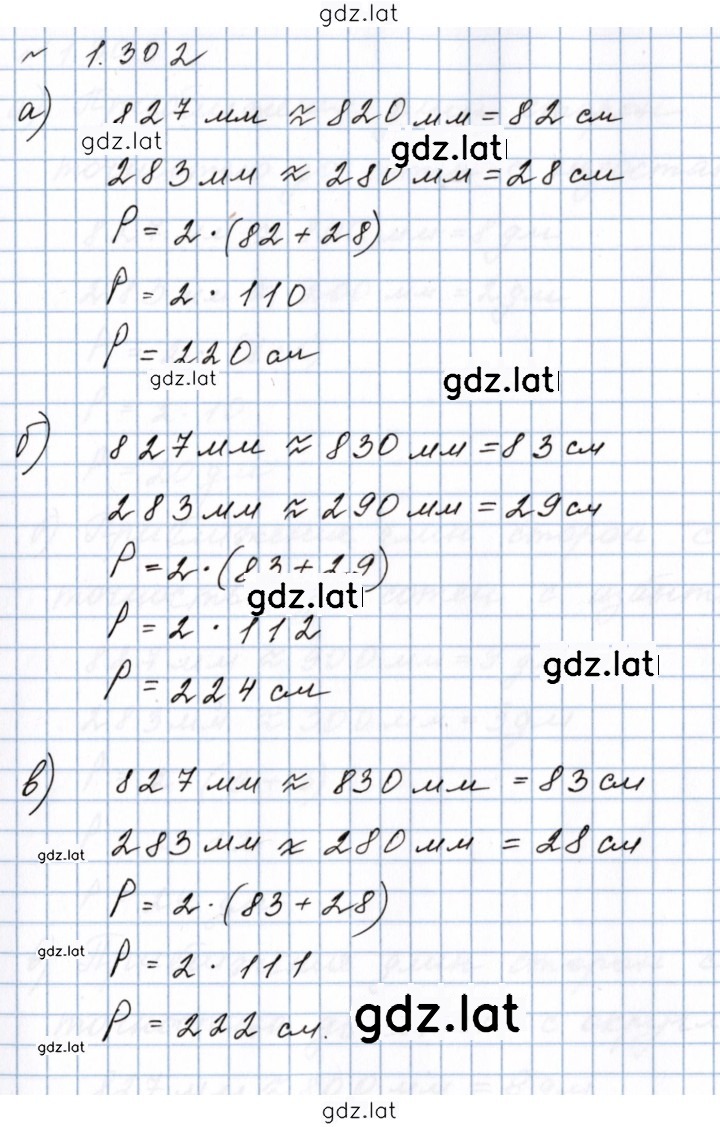 gdz.lat
№ 1.302
а) 827 мм ≈ 820 мм = 82 см
gdz.lat
gdz.lat
283 мм ≈ 280 мм = 28 см
P = 2 · (82 + 28)
P = 2 · 110
P = 220 см
gdz.lat
gdz.lat
б) 827 мм ≈ 830 мм = 83 см
283 мм ≈ 290 мм = 29 см
P = 2 · (83 + 29)
gdz.lat
P = 2 · 112
gdz.lat
P = 224 см
в) 827 мм ≈ 830 мм = 83 см
283 мм ≈ 280 мм = 28 см
gdz.lat
P = 2 · (83 + 28)
gdz.lat
P = 2 · 111
P = 222 см.
gdz.lat
gdz.lat
gdz.lat